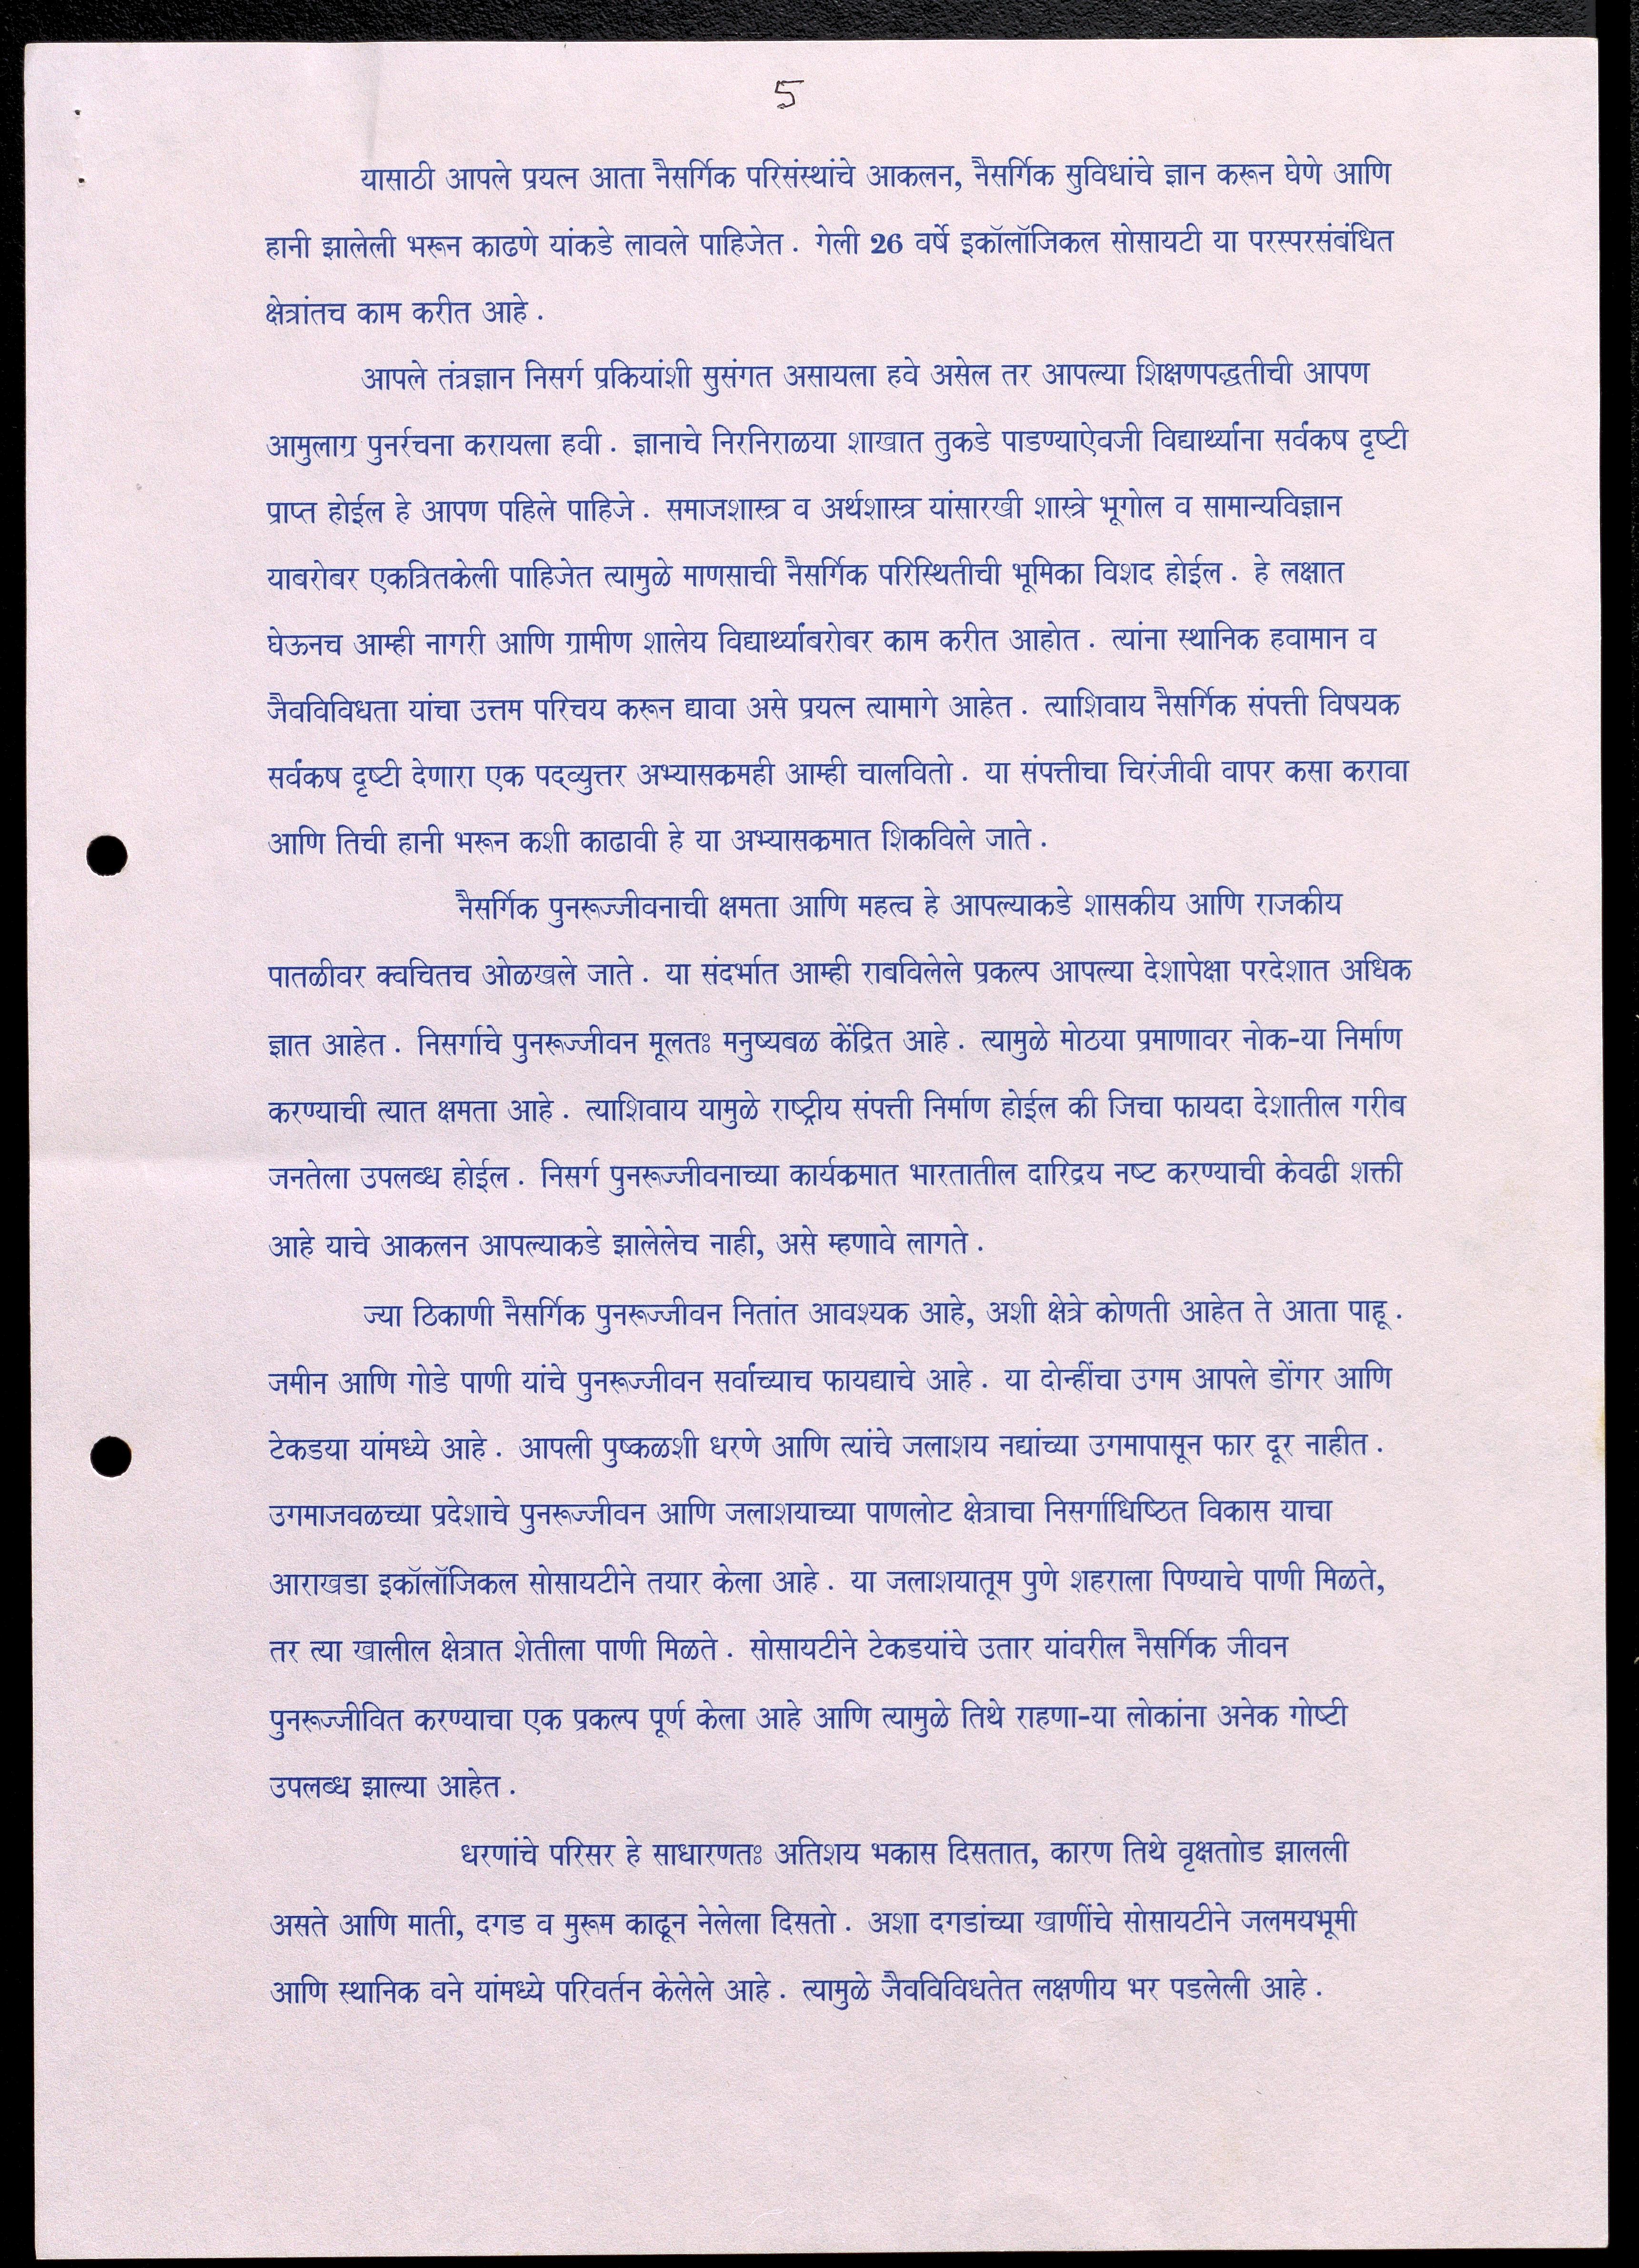 5
यासाठी आपले प्रयत्न आता नैसर्गिक परिसंस्थांचे आकलन, नैसर्गिक सुविधांचे ज्ञान करून घेणे आणि
हानी झालेली भरून काढणे यांकडे लावले पाहिजेत . गेली 26 वर्षे इकॉलॉजिकल सोसायटी या परस्परसंबंधित
क्षेत्रांतच काम करीत आहे .
आपले तंत्रज्ञान निसर्ग प्रकियांशी सुसंगत असायला हवे असेल तर आपल्या शिक्षणपद्धतीची आपण
आमुलाग्र पुनर्रचना करायला हवी . ज्ञानाचे निरनिराळया शाखात तुकडे पाडण्याऐवजी विद्यार्थ्यांना सर्वंकष दृष्टी
प्राप्त होईल हे आपण पहिले पाहिजे . समाजशास्त्र व अर्थशास्त्र यांसारखी शास्त्रे भूगोल व सामान्यविज्ञान
याबरोबर एकत्रितकेली पाहिजेत त्यामुळे माणसाची नैसर्गिक परिस्थितीची भूमिका विशद होईल . हे लक्षात
घेऊनच आम्ही नागरी आणि ग्रामीण शालेय विद्यार्थ्यांबरोबर काम करीत आहोत . त्यांना स्थानिक हवामान व
जैवविविधता यांचा उत्तम परिचय करून द्यावा असे प्रयत्न त्यामागे आहेत . त्याशिवाय नैसर्गिक संपत्ती विषयक
सर्वंकष दृष्टी देणारा एक पद्व्युत्तर अभ्यासकमही आम्ही चालवितो . या संपत्तीचा चिरंजीवी वापर कसा करावा
आणि तिची हानी भरून कशी काढावी हे या अभ्यासकमात शिकविले जाते .
नैसर्गिक पुनरूज्जीवनाची क्षमता आणि महत्व हे आपल्याकडे शासकीय आणि राजकीय
पातळीवर क्वचितच ओळखले जाते . या संदर्भात आम्ही राबविलेले प्रकल्प आपल्या देशापेक्षा परदेशात अधिक
ज्ञात आहेत . निसर्गाचे पुनरूज्जीवन मूलतः मनुष्यबळ केंद्रित आहे . त्यामुळे मोठया प्रमाणावर नोक-या निर्माण
करण्याची त्यात क्षमता आहे . त्याशिवाय यामुळे राष्ट्रीय संपत्ती निर्माण होईल की जिचा फायदा देशातील गरीब
जनतेला उपलब्ध होईल . निसर्ग पुनरूज्जीवनाच्या कार्यकमात भारतातील दारिद्रय नष्ट करण्याची केवढी शक्ती
आहे याचे आकलन आपल्याकडे झालेलेच नाही, असे म्हणावे लागते .
ज्या ठिकाणी नैसर्गिक पुनरूज्जीवन नितांत आवश्यक आहे, अशी क्षेत्रे कोणती आहेत ते आता पाहू .
जमीन आणि गोडे पाणी यांचे पुनरूज्जीवन सर्वांच्याच फायद्याचे आहे . या दोन्हींचा उगम आपले डोंगर आणि
टेकडया यांमध्ये आहे . आपली पुष्कळशी धरणे आणि त्यांचे जलाशय नद्यांच्या उगमापासून फार दूर नाहीत .
उगमाजवळच्या प्रदेशाचे पुनरूज्जीवन आणि जलाशयाच्या पाणलोट क्षेत्राचा निसर्गाधिष्ठित विकास याचा
आराखडा इकॉलॉजिकल सोसायटीने तयार केला आहे . या जलाशयातूम पुणे शहराला पिण्याचे पाणी मिळते,
तर त्या खालील क्षेत्रात शेतीला पाणी मिळते . सोसायटीने टेकडयांचे उतार यांवरील नैसर्गिक जीवन
पुनरूज्जीवित करण्याचा एक प्रकल्प पूर्ण केला आहे आणि त्यामुळे तिथे राहणा-या लोकांना अनेक गोष्टी
उपलब्ध झाल्या आहेत .
धरणांचे परिसर हे साधारणतः अतिशय भकास दिसतात, कारण तिथे वृक्षताोड झालली
असते आणि माती, दगड व मुरूम काढून नेलेला दिसतो . अशा दगडांच्या खाणींचे सोसायटीने जलमयभूमी
आणि स्थानिक वने यांमध्ये परिवर्तन केलेले आहे . त्यामुळे जैवविविधतेत लक्षणीय भर पडलेली आहे .